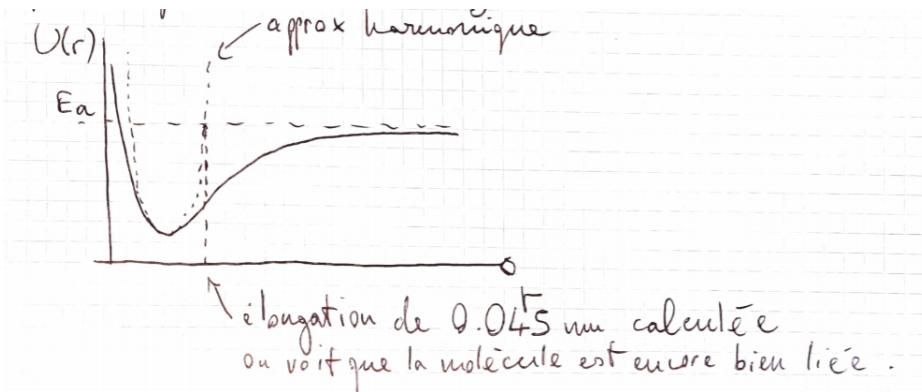 approx harmonique
U(r)
Ea
r
élongation de 0.045 nm calculée
on voit que la molécule est encore bien liée.